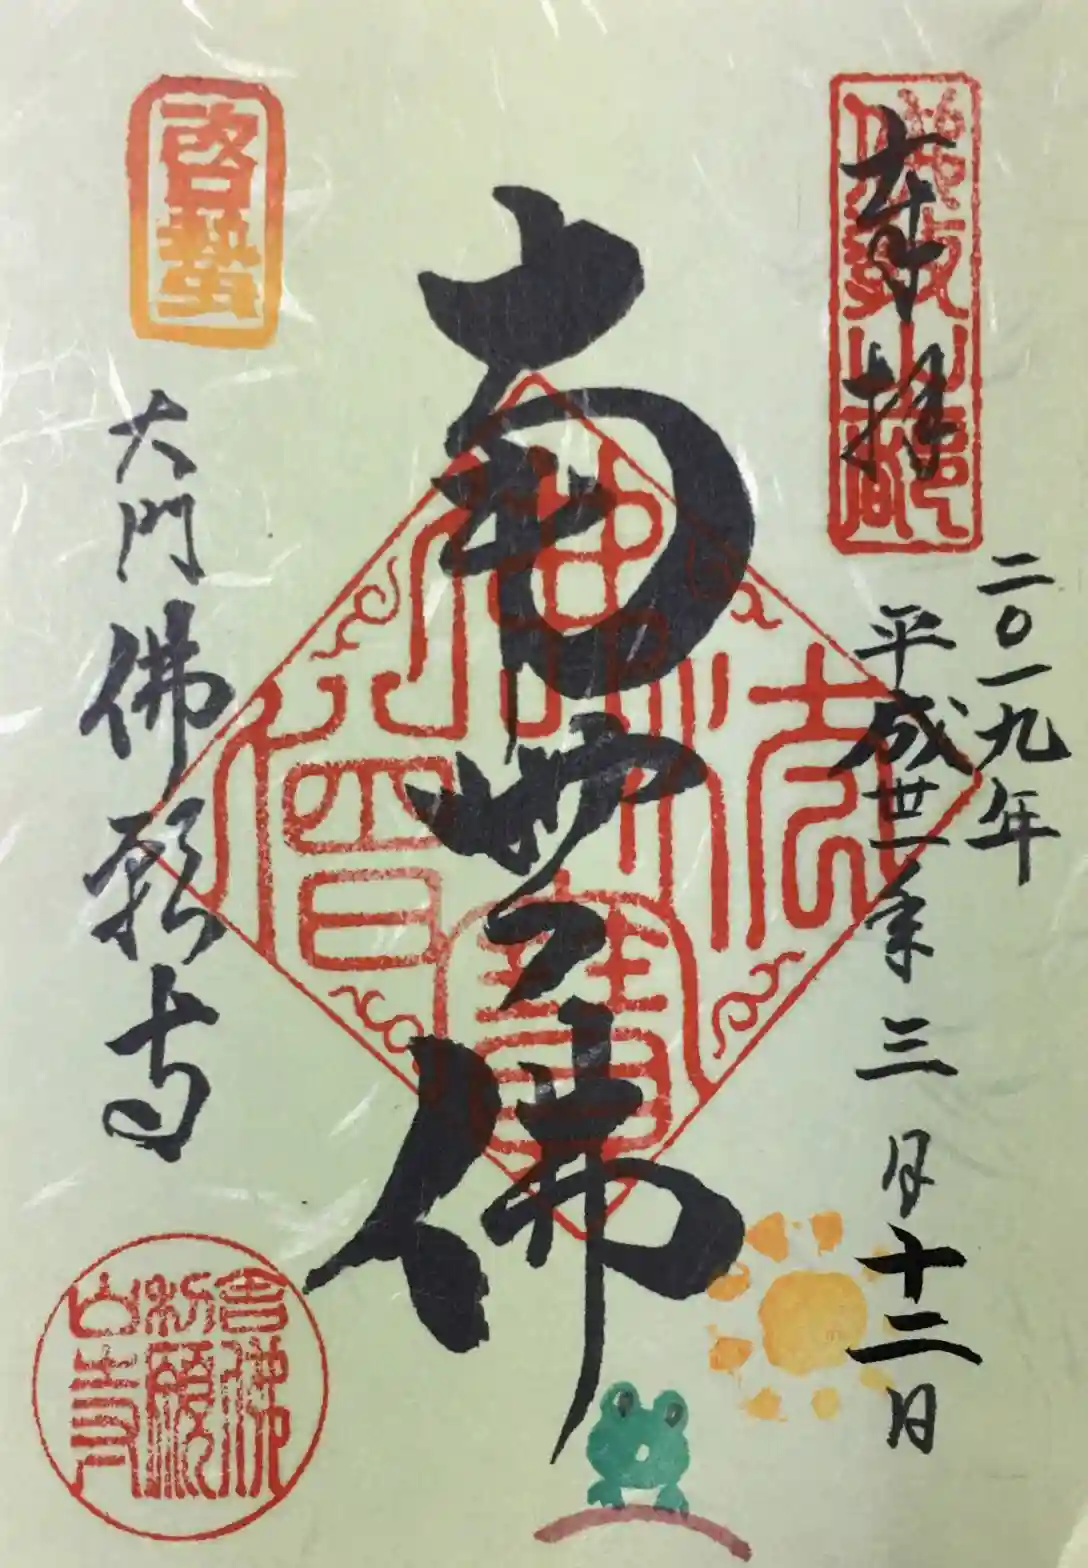 奉拝
二〇一九年
平成卅一年三月十二日
南無佛
啓蟄
大門佛願寺